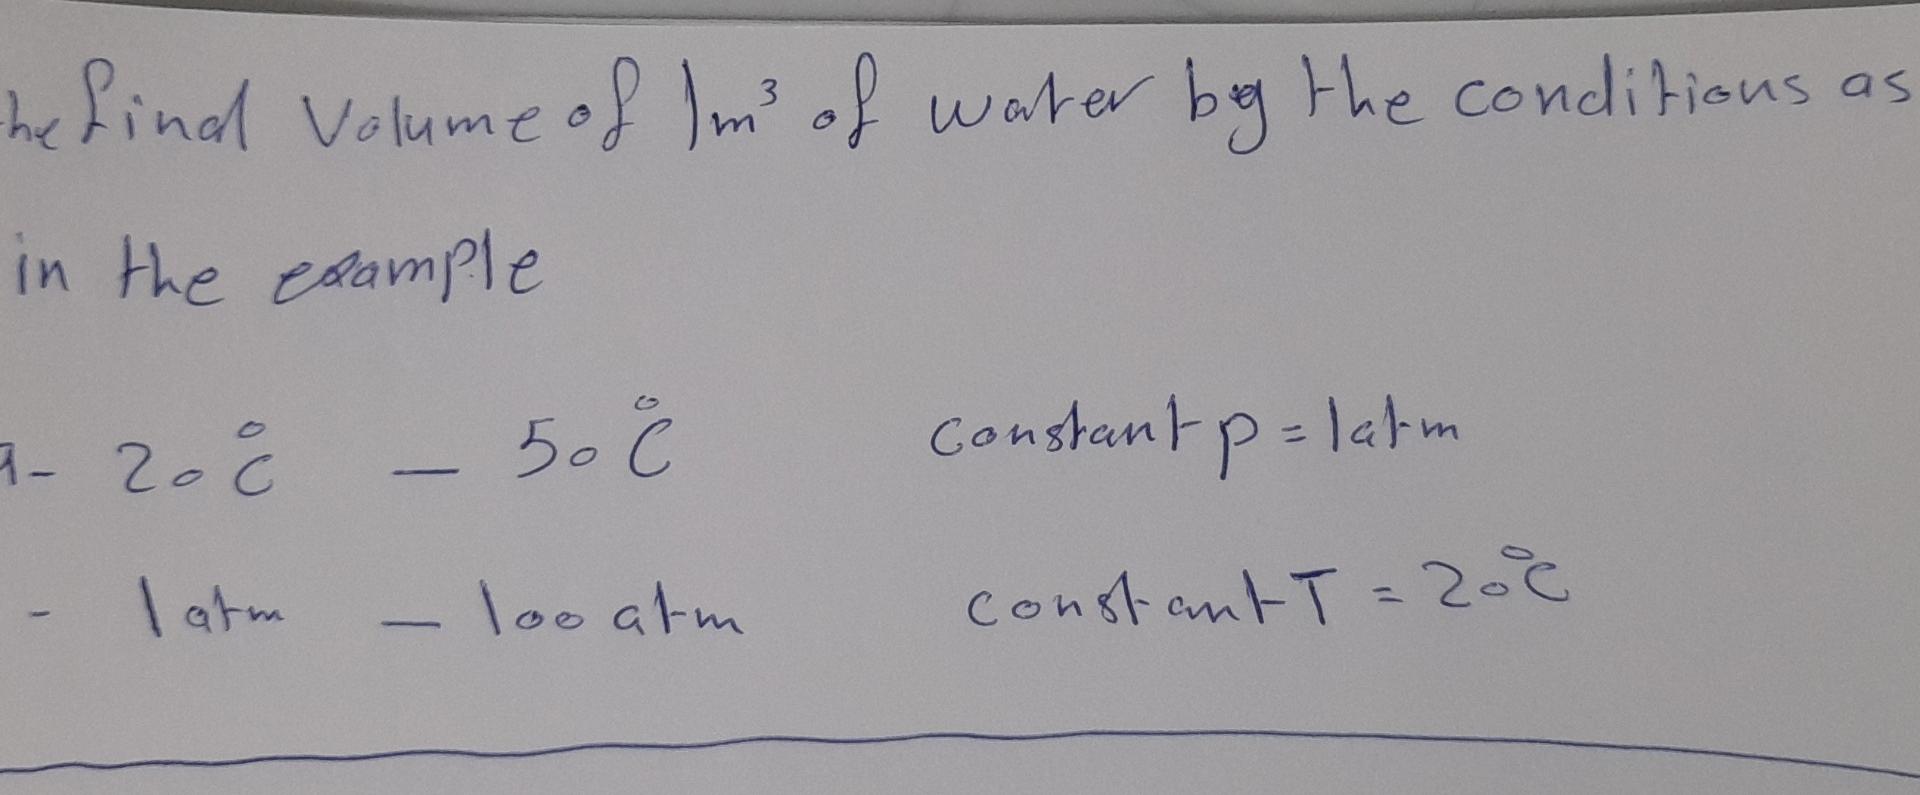 he final Volume of 1m³ of water by the conditions as
in the example
a- 20°C - 50°C constant p = 1atm
- 1atm - 100 atm constant T = 20°C